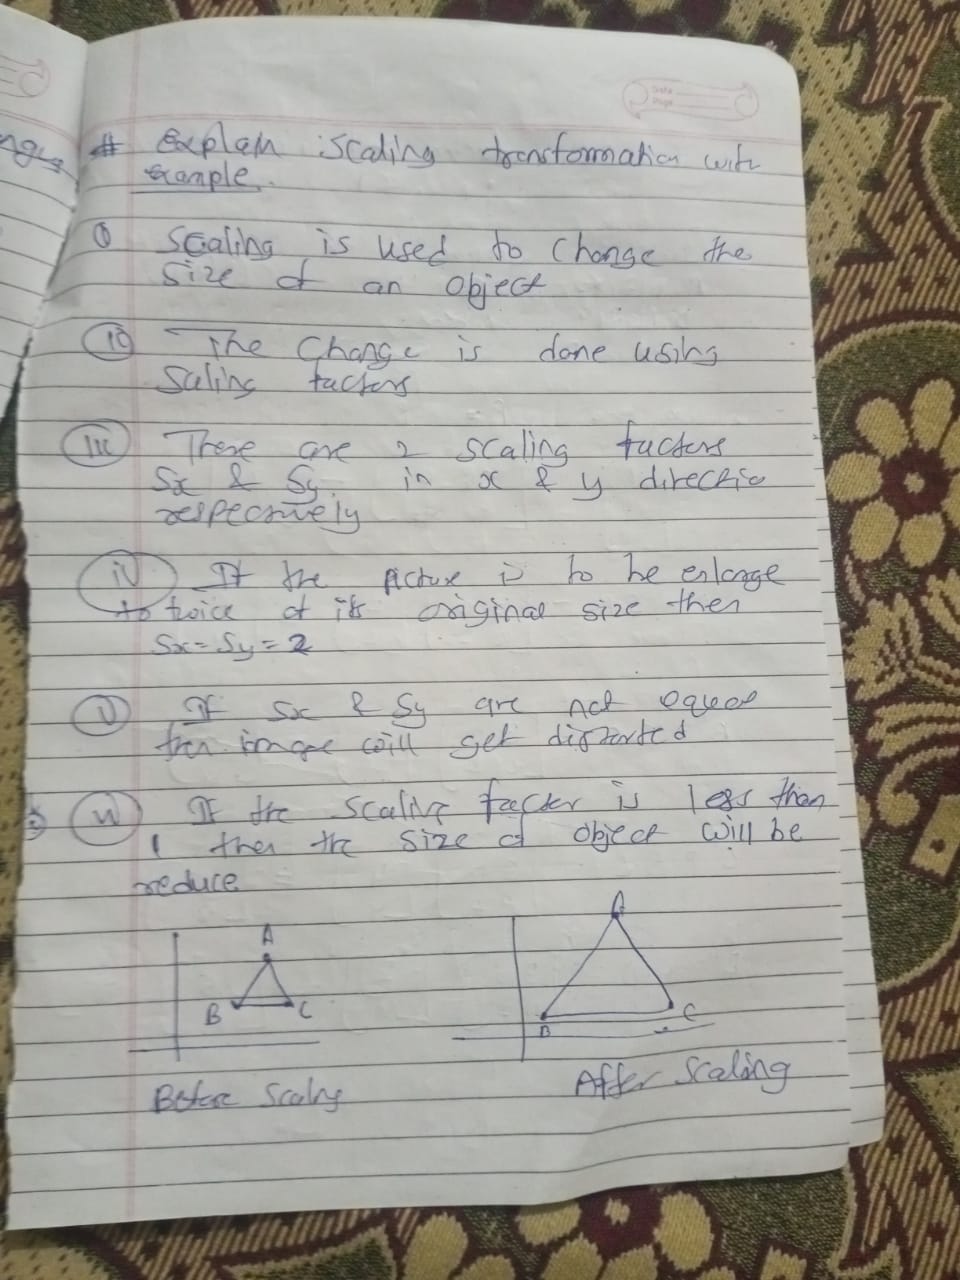 # Explain Scaling transformation with
example.
i Scaling is used to change the
size of an object
ii The Change is done using
Scling factors
iii There are 2 scaling factors
Sx & Sy in x & y directio
respectively
iv If the picture is to be enlarge
to twice of its original size then
Sx = Sy = 2
v If Sx & Sy are not equal
then image will get distorted
vi If the scaling factor is less than
1 then the size of object will be
reduce
A
A
B C
B C
Before Scaling
After Scaling